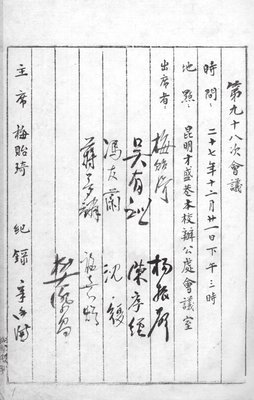 第九十八次會議
時間：二十七年十二月廿一日下午三時
地點：昆明才盛巷本校辦公處會議室
出席者：梅貽琦 楊振聲
吳有訓 陳序經
馮友蘭 沈履
蔣夢麟 施嘉煬
主席 梅貽琦 紀錄 章廷謙